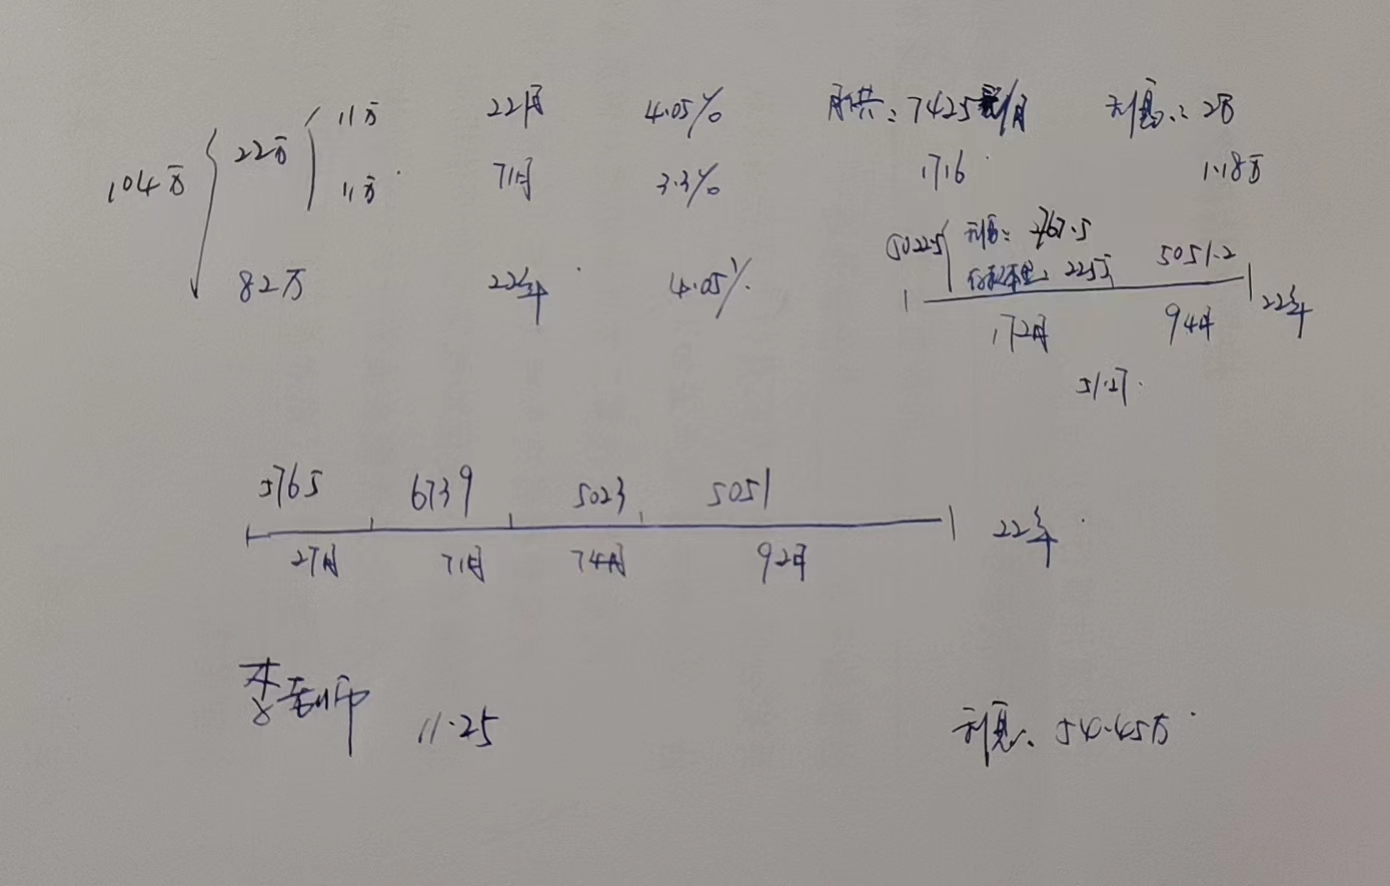 104万 22万 11万 22月 4.05% 月供:7425 /月 利息:2万
11万 71月 3.3% 1716 1.18万
82万 22年 4.05% 5022.5 利息:2767.5
本金:2255 5051.2
172月 94月 22年
51.27
5765 6739 5023 5051
27月 71月 74月 92月 22年
李老师 11.25 利息:54.45万